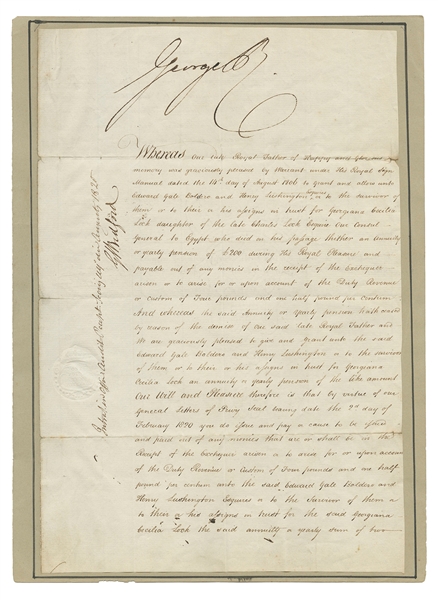 George R.
Whereas Our late Royal Father of Happy and Glorious
memory was graciously pleased by Warrant under His Royal Sign
Manual dated the 14th day of August 1806 to grant and allow unto
Edward Gale Boldero and Henry Lushington Esquires or to the survivor of
them or to their or his assigns in trust for Georgiana Cecilia
Lock daughter of the late Charles Lock Esquire Our Consul
General to Egypt who died on his passage thither an Annuity
or yearly pension of £200 during His Royal Pleasure and
payable out of any monies in the receipt of the Exchequer
arisen or to arise for or upon account of the Duty Revenue
or custom of Four pounds and one half pound per centum
And whereas the said Annuity or yearly pension hath ceased
by reason of the demise of our said late Royal Father and
We are graciously pleased to give and grant unto the said
Edward Gale Boldero and Henry Lushington or to the survivor
of them or to their or his assigns in trust for Georgiana
Cecilia Lock an annuity or yearly pension of the like amount
Our Will and Pleasure therefore is that by virtue of our
General Letters of Privy Seal bearing date the 2nd day of
February 1820 you do issue and pay or cause to be issued
and paid out of any monies that are or shall be in the
Receipt of the Exchequer arisen or to arise for or upon account
of the Duty Revenue or Custom of Four pounds and one half
pound per centum unto the said Edward Gale Boldero and
Henry Lushington Esquires or to the Survivor of them or
to their or his assigns in trust for the said Georgiana
Cecilia Lock the said annuity or yearly sum of two
1820